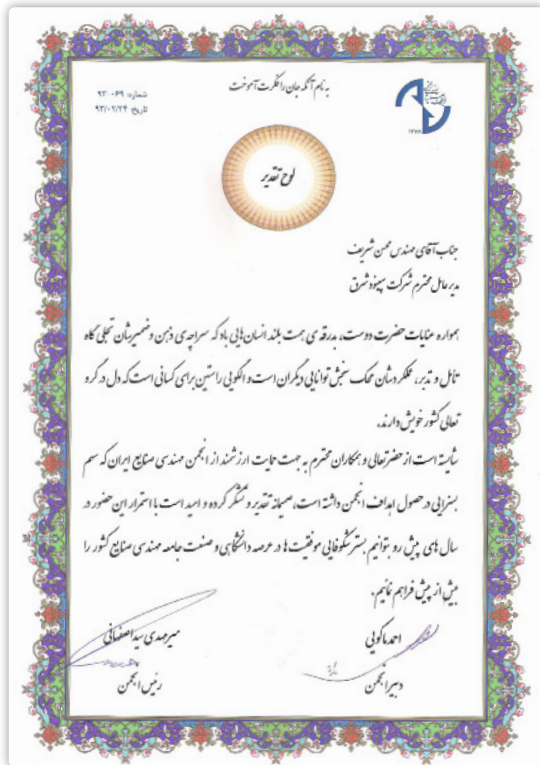 به نام آنکه جان را فکرت آموخت
شماره: ۹۳-۰۶۹
تاریخ: ۹۳/۰۲/۲۴
۱۳۷۸
لوح تقدیر
جناب آقای مهندس محسن شریف
مدیر عامل محترم شرکت بهبود شرق
همواره عنایات حضرت دوست، بدرقه‌ی همت بلند انسان‌هایی باد که سراچه‌ی ذهن و ضمیرشان تجلی گاه
تامل و تدبر، عملکردشان محک سنجش توانایی دیگران است و الگویی راستین برای کسانی است که دل در گرو
تعالی کشور خویش دارند.
شایسته است از حضرتعالی و همکاران محترم به جهت حمایت ارزشمند از انجمن مهندسی صنایع ایران که سهم
بسزایی در حصول اهداف انجمن داشته است، صمیمانه تقدیر و تشکر کرده و امید است با استمرار این حضور در
سال های پیش رو بتوانیم بستر شکوفایی موفقیت ها در عرصه دانشگاهی و صنعت جامعه مهندسی صنایع کشور را
بیش از پیش فراهم نمائیم.
احمد ماکویی
میرمهدی سیداصفهانی
دبیر انجمن
رئیس انجمن